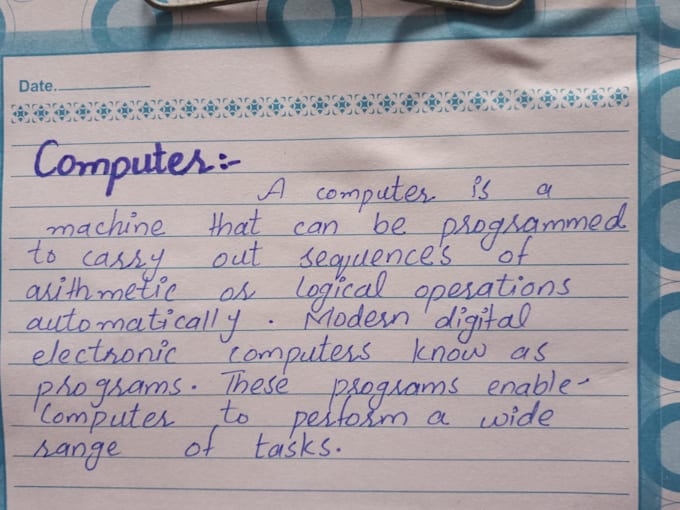 Date.
Computer:-
A computer is a
machine that can be programmed
to carry out sequences of
arithmetic or logical operations
automatically. Modern digital
electronic computers know as
programs. These programs enable-
computer to perform a wide
range of tasks.